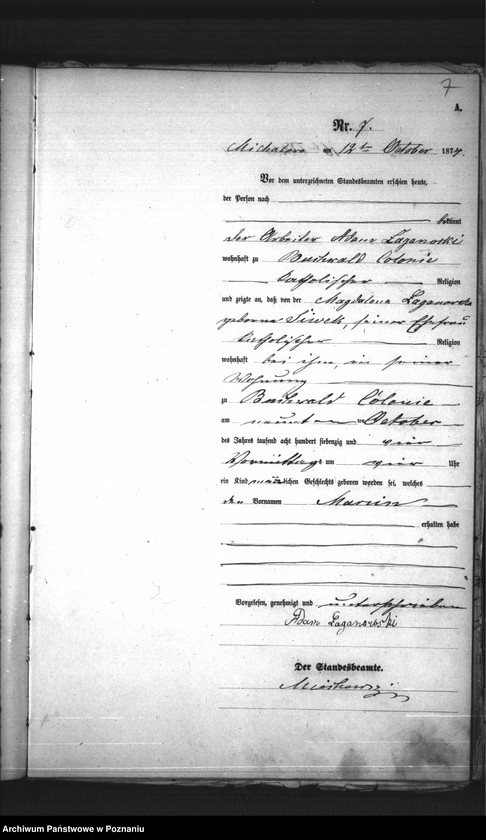 7
A.
Nr. 7.
Michalowo am 12ten October 1874.
Vor dem unterzeichneten Standesbeamten erschien heute,
der Person nach
bekannt
der Arbeiter Adam Laganoski
wohnhaft zu Buchwald Colonie
katholischer Religion
und zeigte an, daß von der Magdalena Laganowska
geborne Siwek, seiner Ehefrau
katholischer Religion
wohnhaft bei ihm, in seiner
Wohnung
zu Buchwald Colonie
am neunten ten October
des Jahres tausend acht hundert siebenzig und vier
Vormittags um vier Uhr
ein Kind männlichen Geschlechts geboren worden sei, welches
den Vornamen Marcin
erhalten habe
Vorgelesen, genehmigt und unterschrieben
Adam Laganowski
Der Standesbeamte.
Archiwum Państwowe w Poznaniu